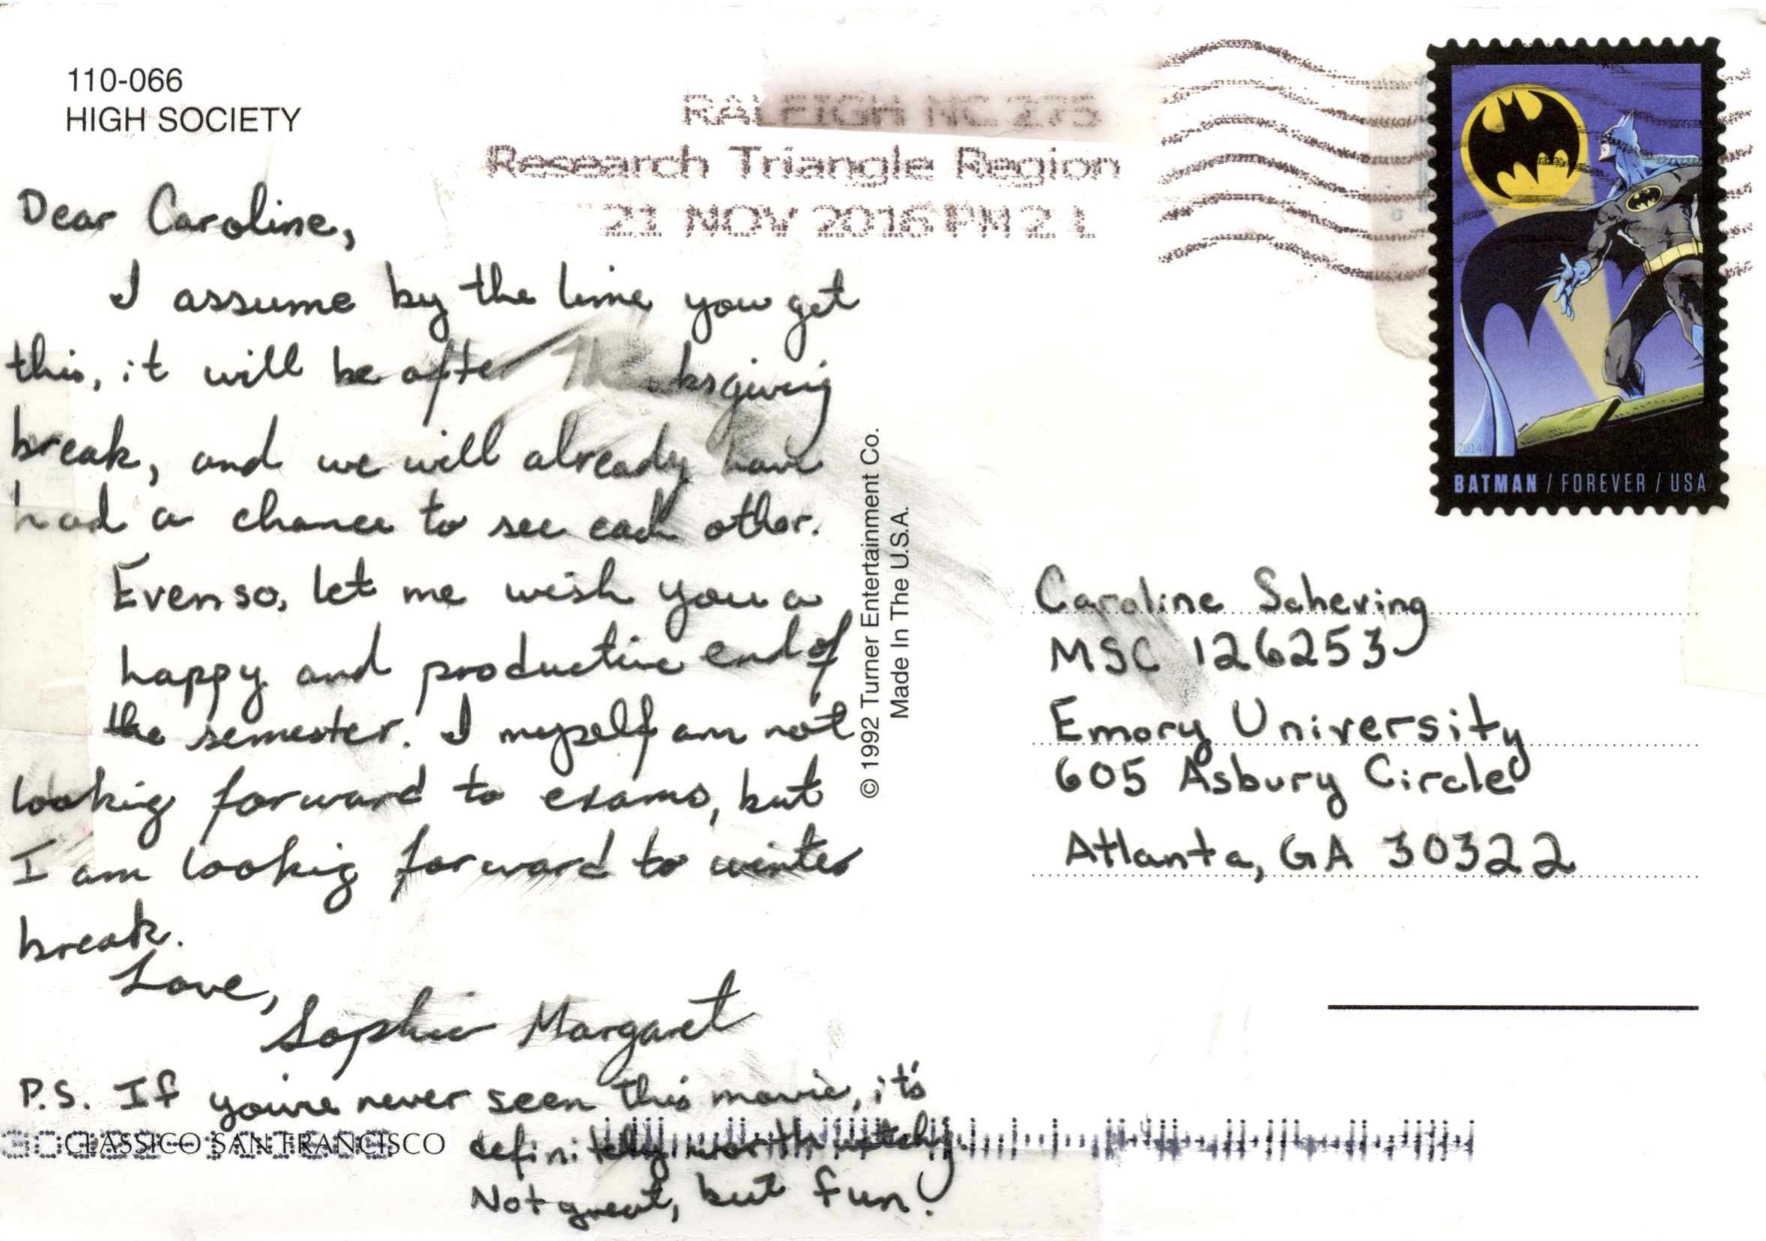 110-066
HIGH SOCIETY
RALEIGH NC 275
Research Triangle Region
21 NOV 2016 PM 2 L
Dear Caroline,
I assume by the time you get
this, it will be after Thanksgiving
break, and we will already have
had a chance to see each other.
Even so, let me wish you a
happy and productive end of
the semester. I myself am not
looking forward to exams, but
I am looking forward to winter
break.
Love,
Sophie Margaret
P.S. If you're never seen this movie, it's
definitely worth watching.
Not great, but fun!
CLASSICO SAN FRANCISCO
© 1992 Turner Entertainment Co.
Made In The U.S.A.
2014
BATMAN / FOREVER / USA
Caroline Schering
MSC 126253
Emory University
605 Asbury Circle
Atlanta, GA 30322